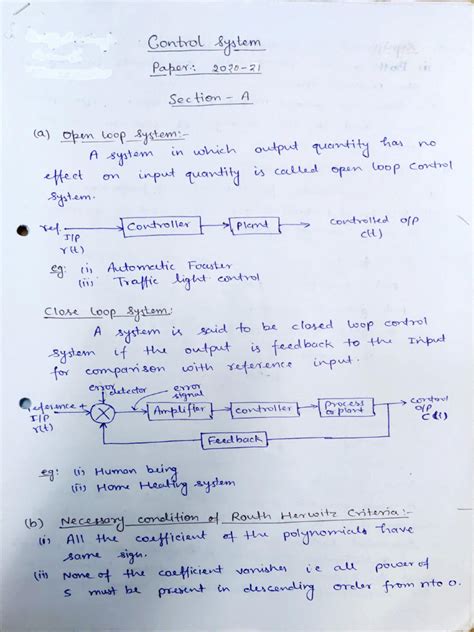 Control System
Paper:- 2020-21
Section - A
(a) Open loop system:-
A system in which output quantity has no
effect on input quantity is called open loop control
system.
ref. I/P r(t) Controller Plant controlled o/p c(t)
eg: (i) Automatic Toaster
(ii) Traffic light control
Close loop system:
A system is said to be closed loop control
system if the output is feedback to the Input
for comparison with reference input.
error detector error signal
reference + I/P r(t) Amplifier Controller Process or plant control o/p C(t)
Feedback
eg: (i) Human being
(ii) Home Heating system
(b) Necessary condition of Routh Herwitz Criteria:-
(i) All the coefficient of the polynomials have
same sign.
(ii) None of the coefficient vanishes i.e all power of
S must be present in descending order from n to 0.